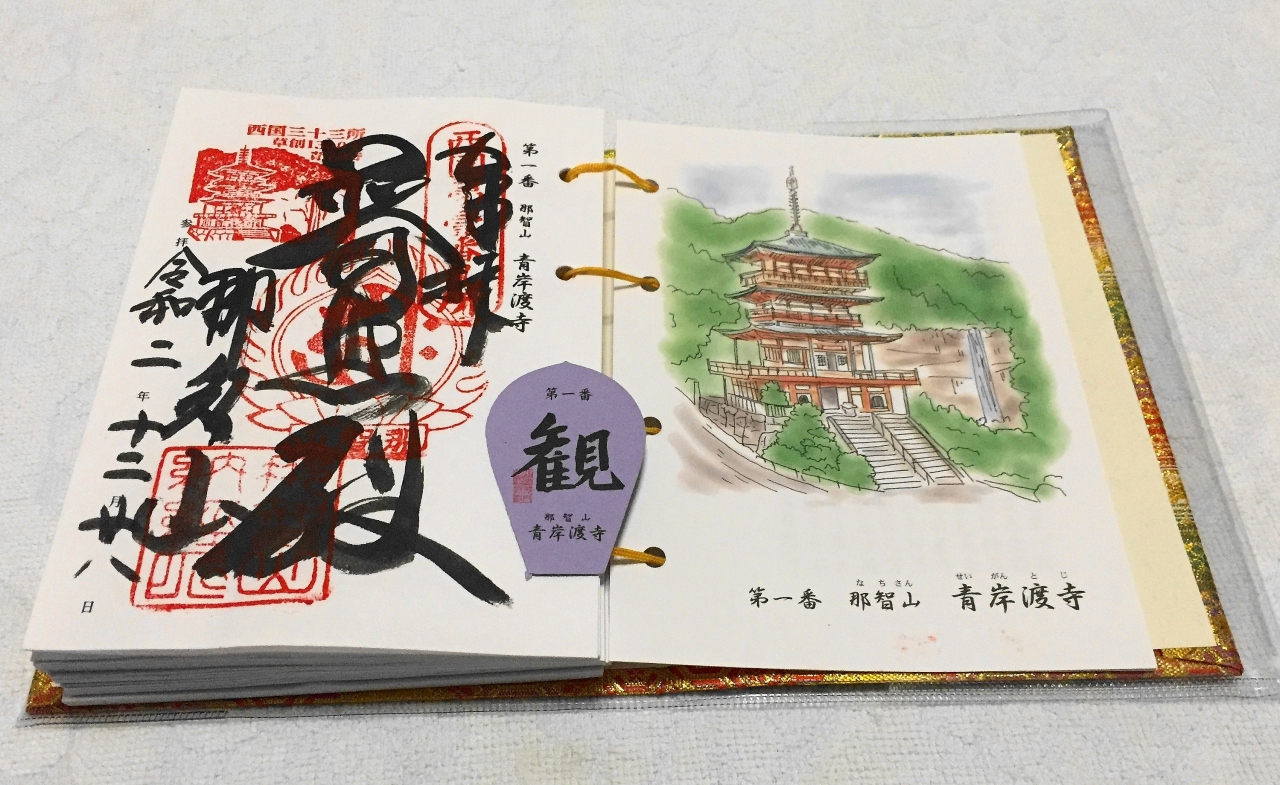 第一番 那智山 青岸渡寺
奉拝
普照殿
那智山
参拝 令和二年十二月廿八日
西国三十三所
第一番
観
那智山
青岸渡寺
なちさん せいがんとじ
第一番 那智山 青岸渡寺